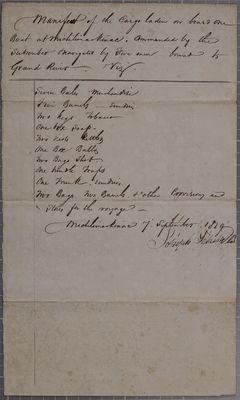 Manifest of the Cargo laden on board one
Boat at Michilimackinac, Commanded by the
Subscriber Navigated by five men bound to
Grand River — Viz
Seven Bales Merchandise
Five Barrels — Sundries
two Kegs Tobacco
One Box Soap —
two
One Box Balls
Two Bags Shot
One Bundle Traps
One Trunk, Sundries
Two Bags, Two Barrels & other Provisions and
Stores for the voyage —
Michilimackinac 7 September 1819
Joseph